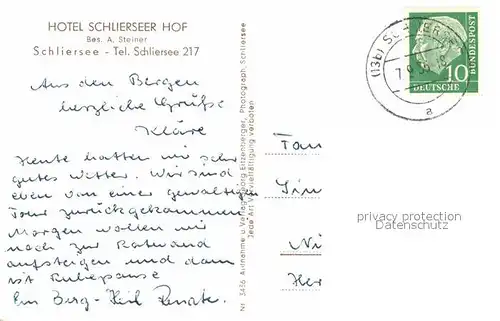 HOTEL SCHLIERSEER HOF
Bes. A. Steiner
Schliersee - Tel. Schliersee 217
Aus den Bergen
herzliche Grüße
Kläre
Heute hatten wir sehr
gutes Wetter. Wir sind
eben von einer gewaltigen
Tour zurückgekommen
Morgen wollen wir
nach zur Rotwand
aufsteigen und dann
ist Ruhepause
Ein Berg-Heil Renate.
Nr. 3436 Aufnahme u. Verlag Georg Eitzenberger, Photograph, Schliersee
Jede Art Vervielfältigung verboten
(13b) SCHLIERSEE
a
10
DEUTSCHE
BUNDESPOST
privacy protection
Datenschutz